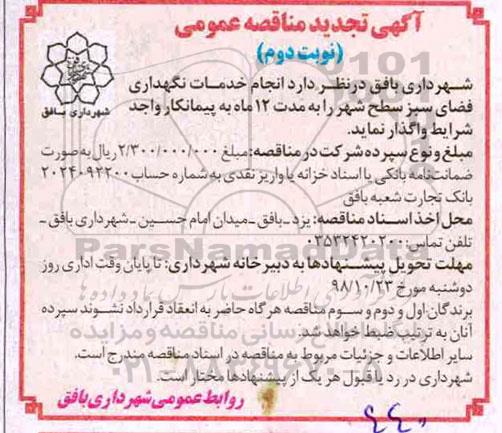 آگهی تجدید مناقصه عمومی
(نوبت دوم)
شهرداری بافق
شهرداری بافق درنظر دارد انجام خدمات نگهداری
فضای سبز سطح شهر را به مدت ۱۲ ماه به پیمانکار واجد
شرایط واگذار نماید.
مبلغ و نوع سپرده شرکت در مناقصه: مبلغ ۲/۳۰۰/۰۰۰/۰۰۰ ریال به صورت
ضمانت‌نامه بانکی یا اسناد خزانه یا واریز نقدی به شماره حساب ۲۰۲۴۰۹۲۲۰۰
بانک تجارت شعبه بافق
محل اخذ اسناد مناقصه: یزد ـ بافق ـ میدان امام حسین ـ شهرداری بافق ـ
تلفن تماس: ۰۳۵۳۲۴۲۰۲۰۰
مهلت تحویل پیشنهادها به دبیرخانه شهرداری: تا پایان وقت اداری روز
دوشنبه مورخ ۹۸/۱۰/۲۳
برندگان اول و دوم و سوم مناقصه هرگاه حاضر به انعقاد قرارداد نشوند سپرده
آنان به ترتیب ضبط خواهد شد.
سایر اطلاعات و جزئیات مربوط به مناقصه در اسناد مناقصه مندرج است.
شهرداری در رد یا قبول هر یک از پیشنهادها مختار است.
روابط عمومی شهرداری بافق
ParsNamadData